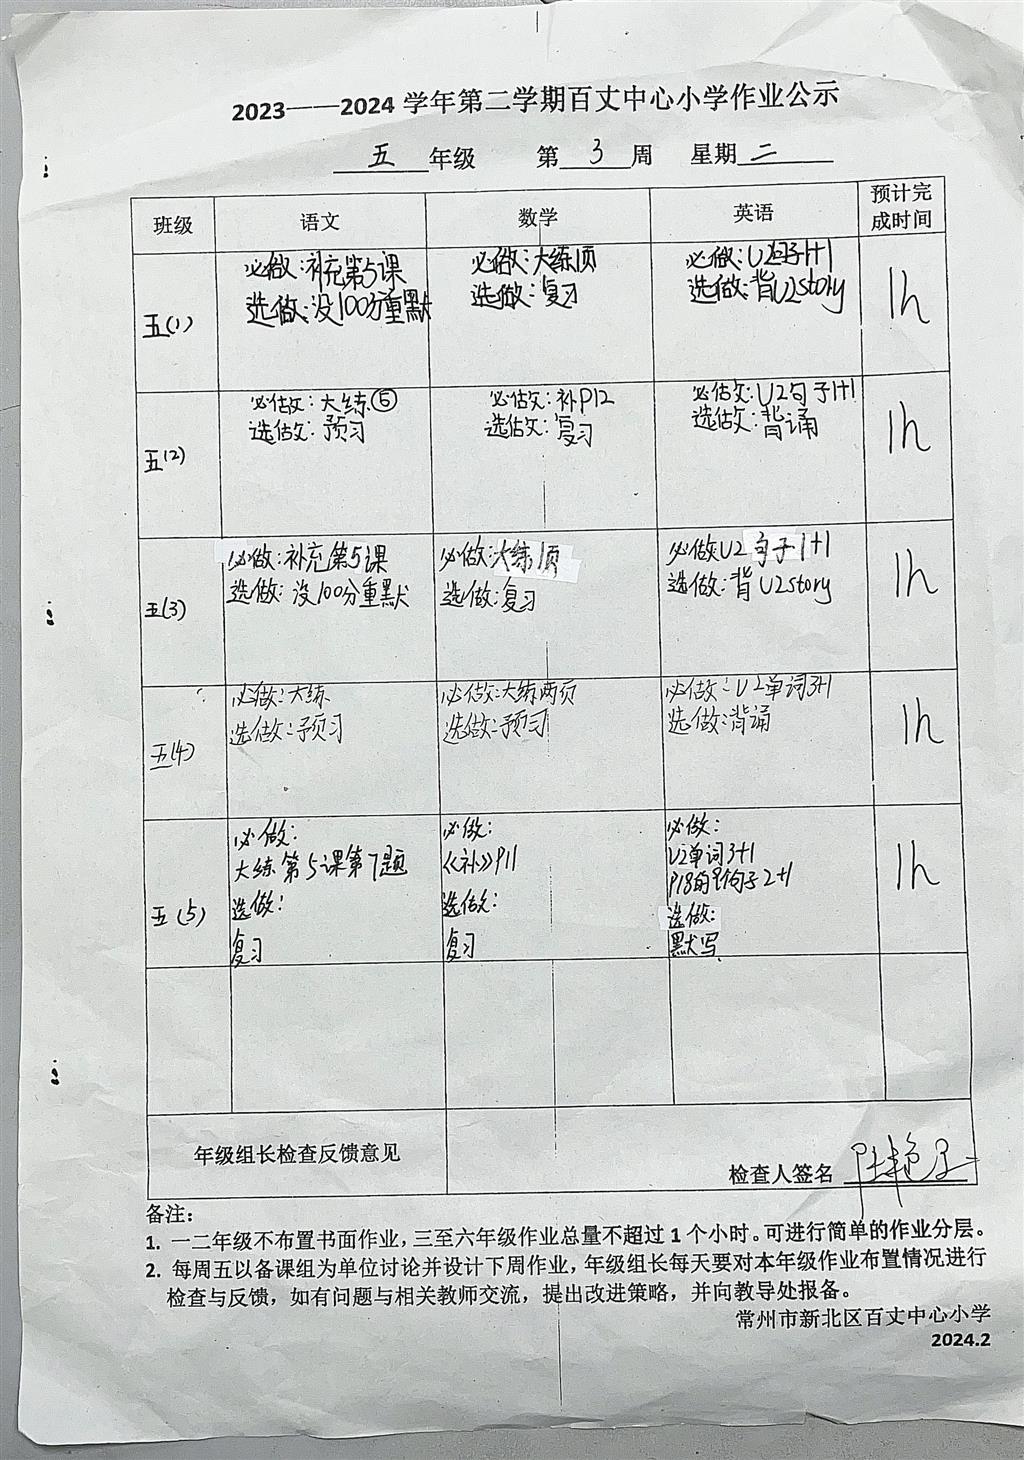 2023——2024 学年第二学期百丈中心小学作业公示
五 年级 第 3 周 星期 二
班级 语文 数学 英语 预计完成时间
五(1)
必做:补充第5课
选做:没100分重默
必做:大练1页
选做:复习
必做:U2句子1+1
选做:背U2story
1h
五(2)
必做:大练⑤
选做:预习
必做:补P12
选做:复习
必做:U2句子1+1
选做:背诵
1h
五(3)
必做:补充第5课
选做:没100分重默
必做:大练1页
选做:复习
必做U2句子1+1
选做:背U2story
1h
五(4)
必做:大练
选做:预习
必做:大练两页
选做:预习
必做:U2单词3+1
选做:背诵
1h
五(5)
必做:
大练第5课第7题
选做:
复习
必做:
《补》P11
选做:
复习
必做:
U2单词3+1
P18的句子2+1
选做:
默写
1h
年级组长检查反馈意见
检查人签名
备注:
1. 一二年级不布置书面作业,三至六年级作业总量不超过 1 个小时。可进行简单的作业分层。
2. 每周五以备课组为单位讨论并设计下周作业,年级组长每天要对本年级作业布置情况进行
检查与反馈,如有问题与相关教师交流,提出改进策略,并向教导处报备。
常州市新北区百丈中心小学
2024.2